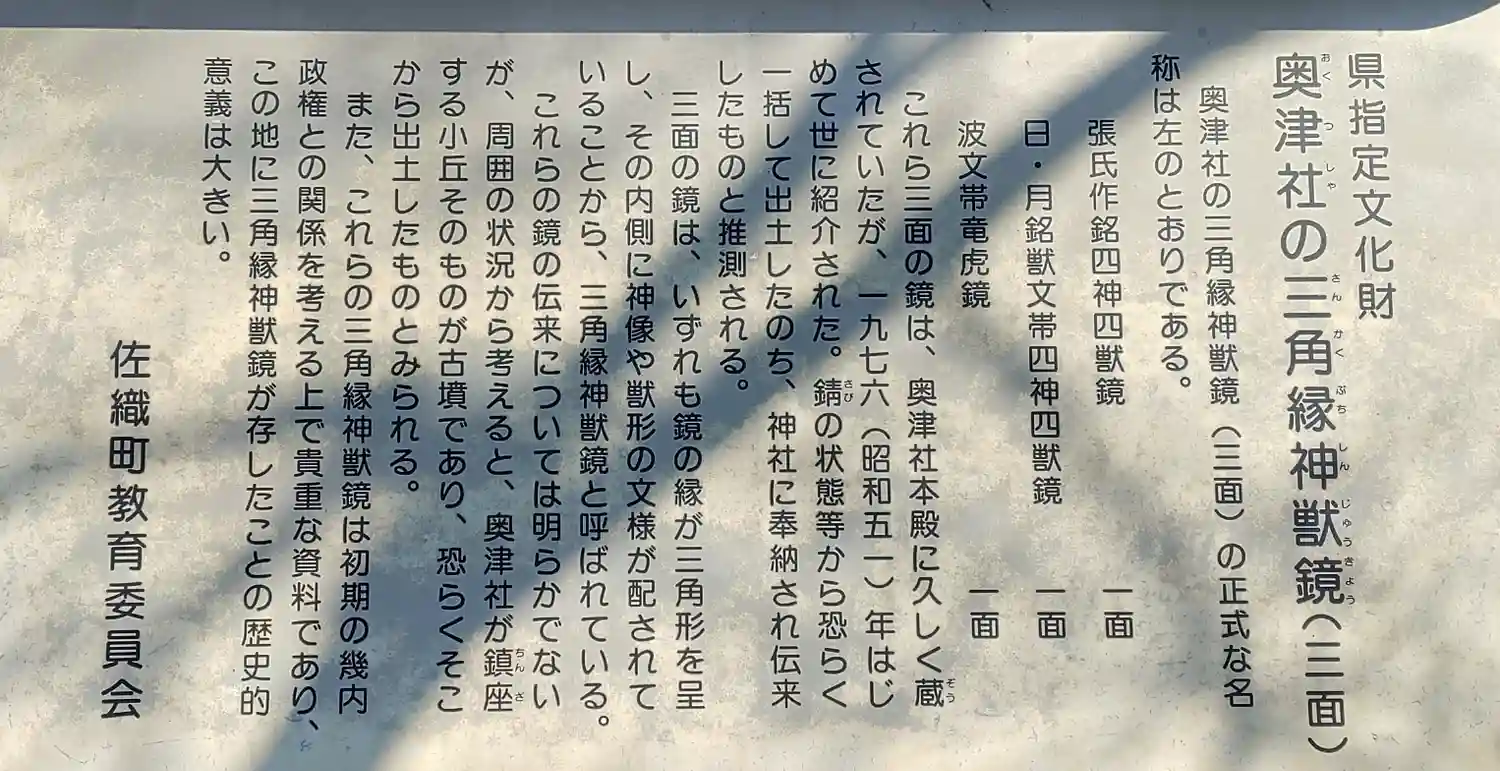 県指定文化財
奥津社の三角縁神獣鏡(三面)
奥津社の三角縁神獣鏡(三面)の正式な名
称は左のとおりである。
張氏作銘四神四獣鏡 一面
日・月銘獣文帯四神四獣鏡 一面
波文帯竜虎鏡 一面
これら三面の鏡は、奥津社本殿に久しく蔵
されていたが、一九七六(昭和五一)年はじ
めて世に紹介された。錆の状態等から恐らく
一括して出土したのち、神社に奉納され伝来
したものと推測される。
三面の鏡は、いずれも鏡の縁が三角形を呈
し、その内側に神像や獣形の文様が配されて
いることから、三角縁神獣鏡と呼ばれている。
これらの鏡の伝来については明らかでない
が、周囲の状況から考えると、奥津社が鎮座
する小丘そのものが古墳であり、恐らくそこ
から出土したものとみられる。
また、これらの三角縁神獣鏡は初期の幾内
政権との関係を考える上で貴重な資料であり、
この地に三角縁神獣鏡が存したことの歴史的
意義は大きい。
佐織町教育委員会